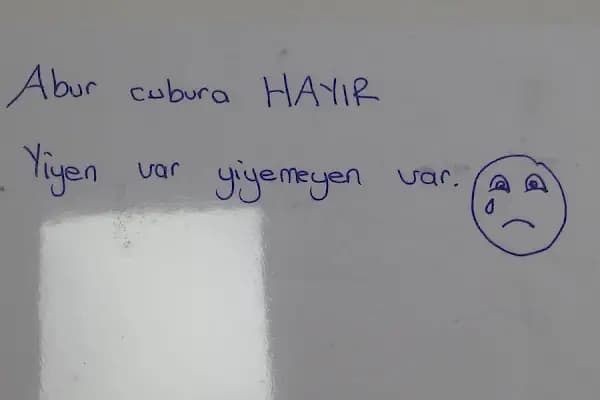 Abur cubura HAYIR
Yiyen var yiyemeyen var.